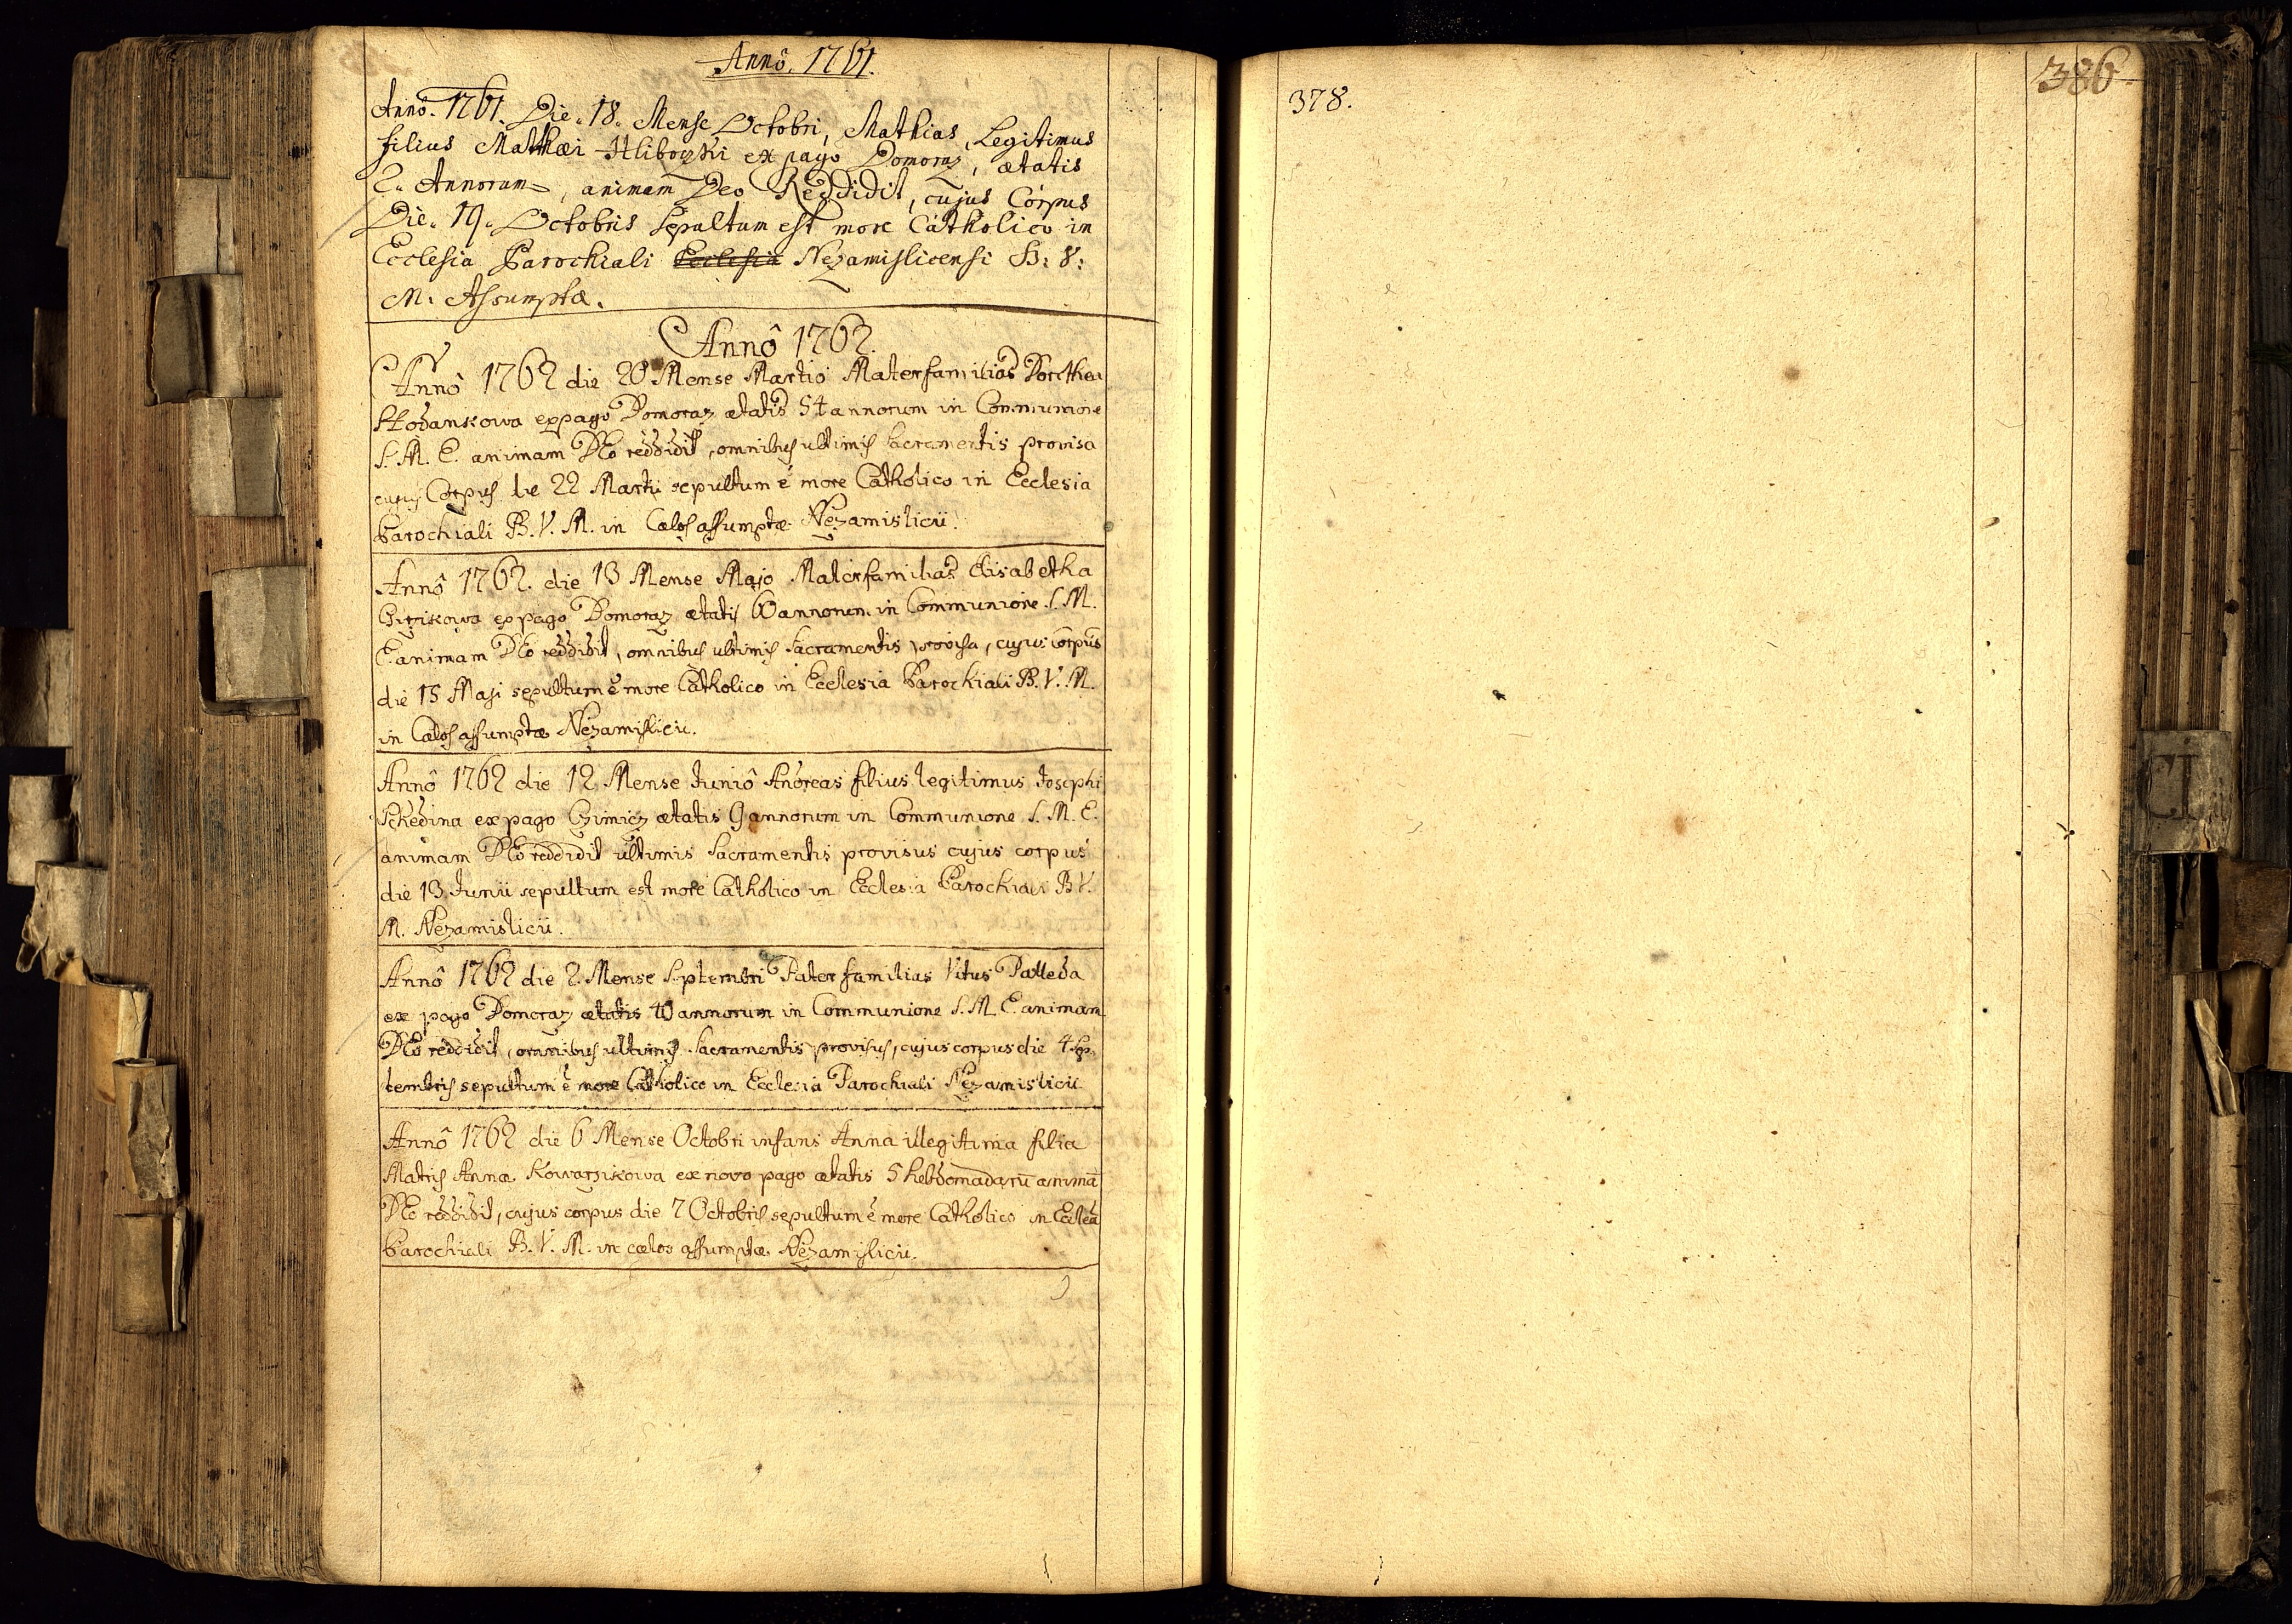 Annô. 1761.
Annô. 1761. Die. 18. Mense Octobri, Mathias, Legitimus
filius Mathæi Hliboczki ex pago Domoraz, ætatis
2. Annorum, animam Deo Reddidit, cujus Corpus
Die. 19. Octobris Sepultum est more Catholico in
Ecclesia Parochiali Ecclesia Nezamislicensi B: V:
M. Assumptæ.
Annô 1762.
Annô 1762 die 20 Mense Martio Materfamilias Dorothea
ex pago Domoraz ætatis 54 annorum in Communione
S. M. E. animam DEo reddidit, omnibus ultimis Sacramentis provisa
cujus Corpus die 22 Martii sepultum ē more Catholico in Ecclesia
Parochiali B. V. M. in Cælos assumptæ Nezamislicii.
Annô 1762. die 13 Mense Majo Materfamilias Elisabetha
ex pago Domoraz ætatis 60 annorum in Communione S. M.
E. animam DEo reddidit, omnibus ultimis Sacramentis provisa, cujus corpus
die 15 Maji sepultum ē more Catholico in Ecclesia Parochiali B. V. M.
in Cælos assumptæ Nezamislicii.
Annô 1762 die 12 Mense Juniô Andreas filius legitimus Josephi
Schedina ex pago Czimicz ætatis 9 annorum in Communione S. M. E.
animam DEo reddidit ultimis Sacramentis provisus cujus corpus
die 13 Junii sepultum est more Catholico in Ecclesia Parochiali B V.
M. Nezamislicii.
Annô 1762 die 2. Mense Septembri Pater familias Vitus Palleda
ex pago Domoraz ætatis 40 annorum in Communione S. M. E. animam
DEo reddidit, omnibus ultimis Sacramentis provisus, cujus corpus die 4 Sep-
tembris sepultum ē more Catholico in Ecclesia Parochiali Nezamislicii
Annô 1762 die 6 Mense Octobri infans Anna illegitima filia
Matris Annæ Kowarzikowa ex novo pago ætatis 5 hebdomadarū animā
DEo reddidit, cujus corpus die 7 Octobris sepultum ē more Catholico in
Parochiali B. V. M. in cælos assumptæ Nezamislicii.
378.
386